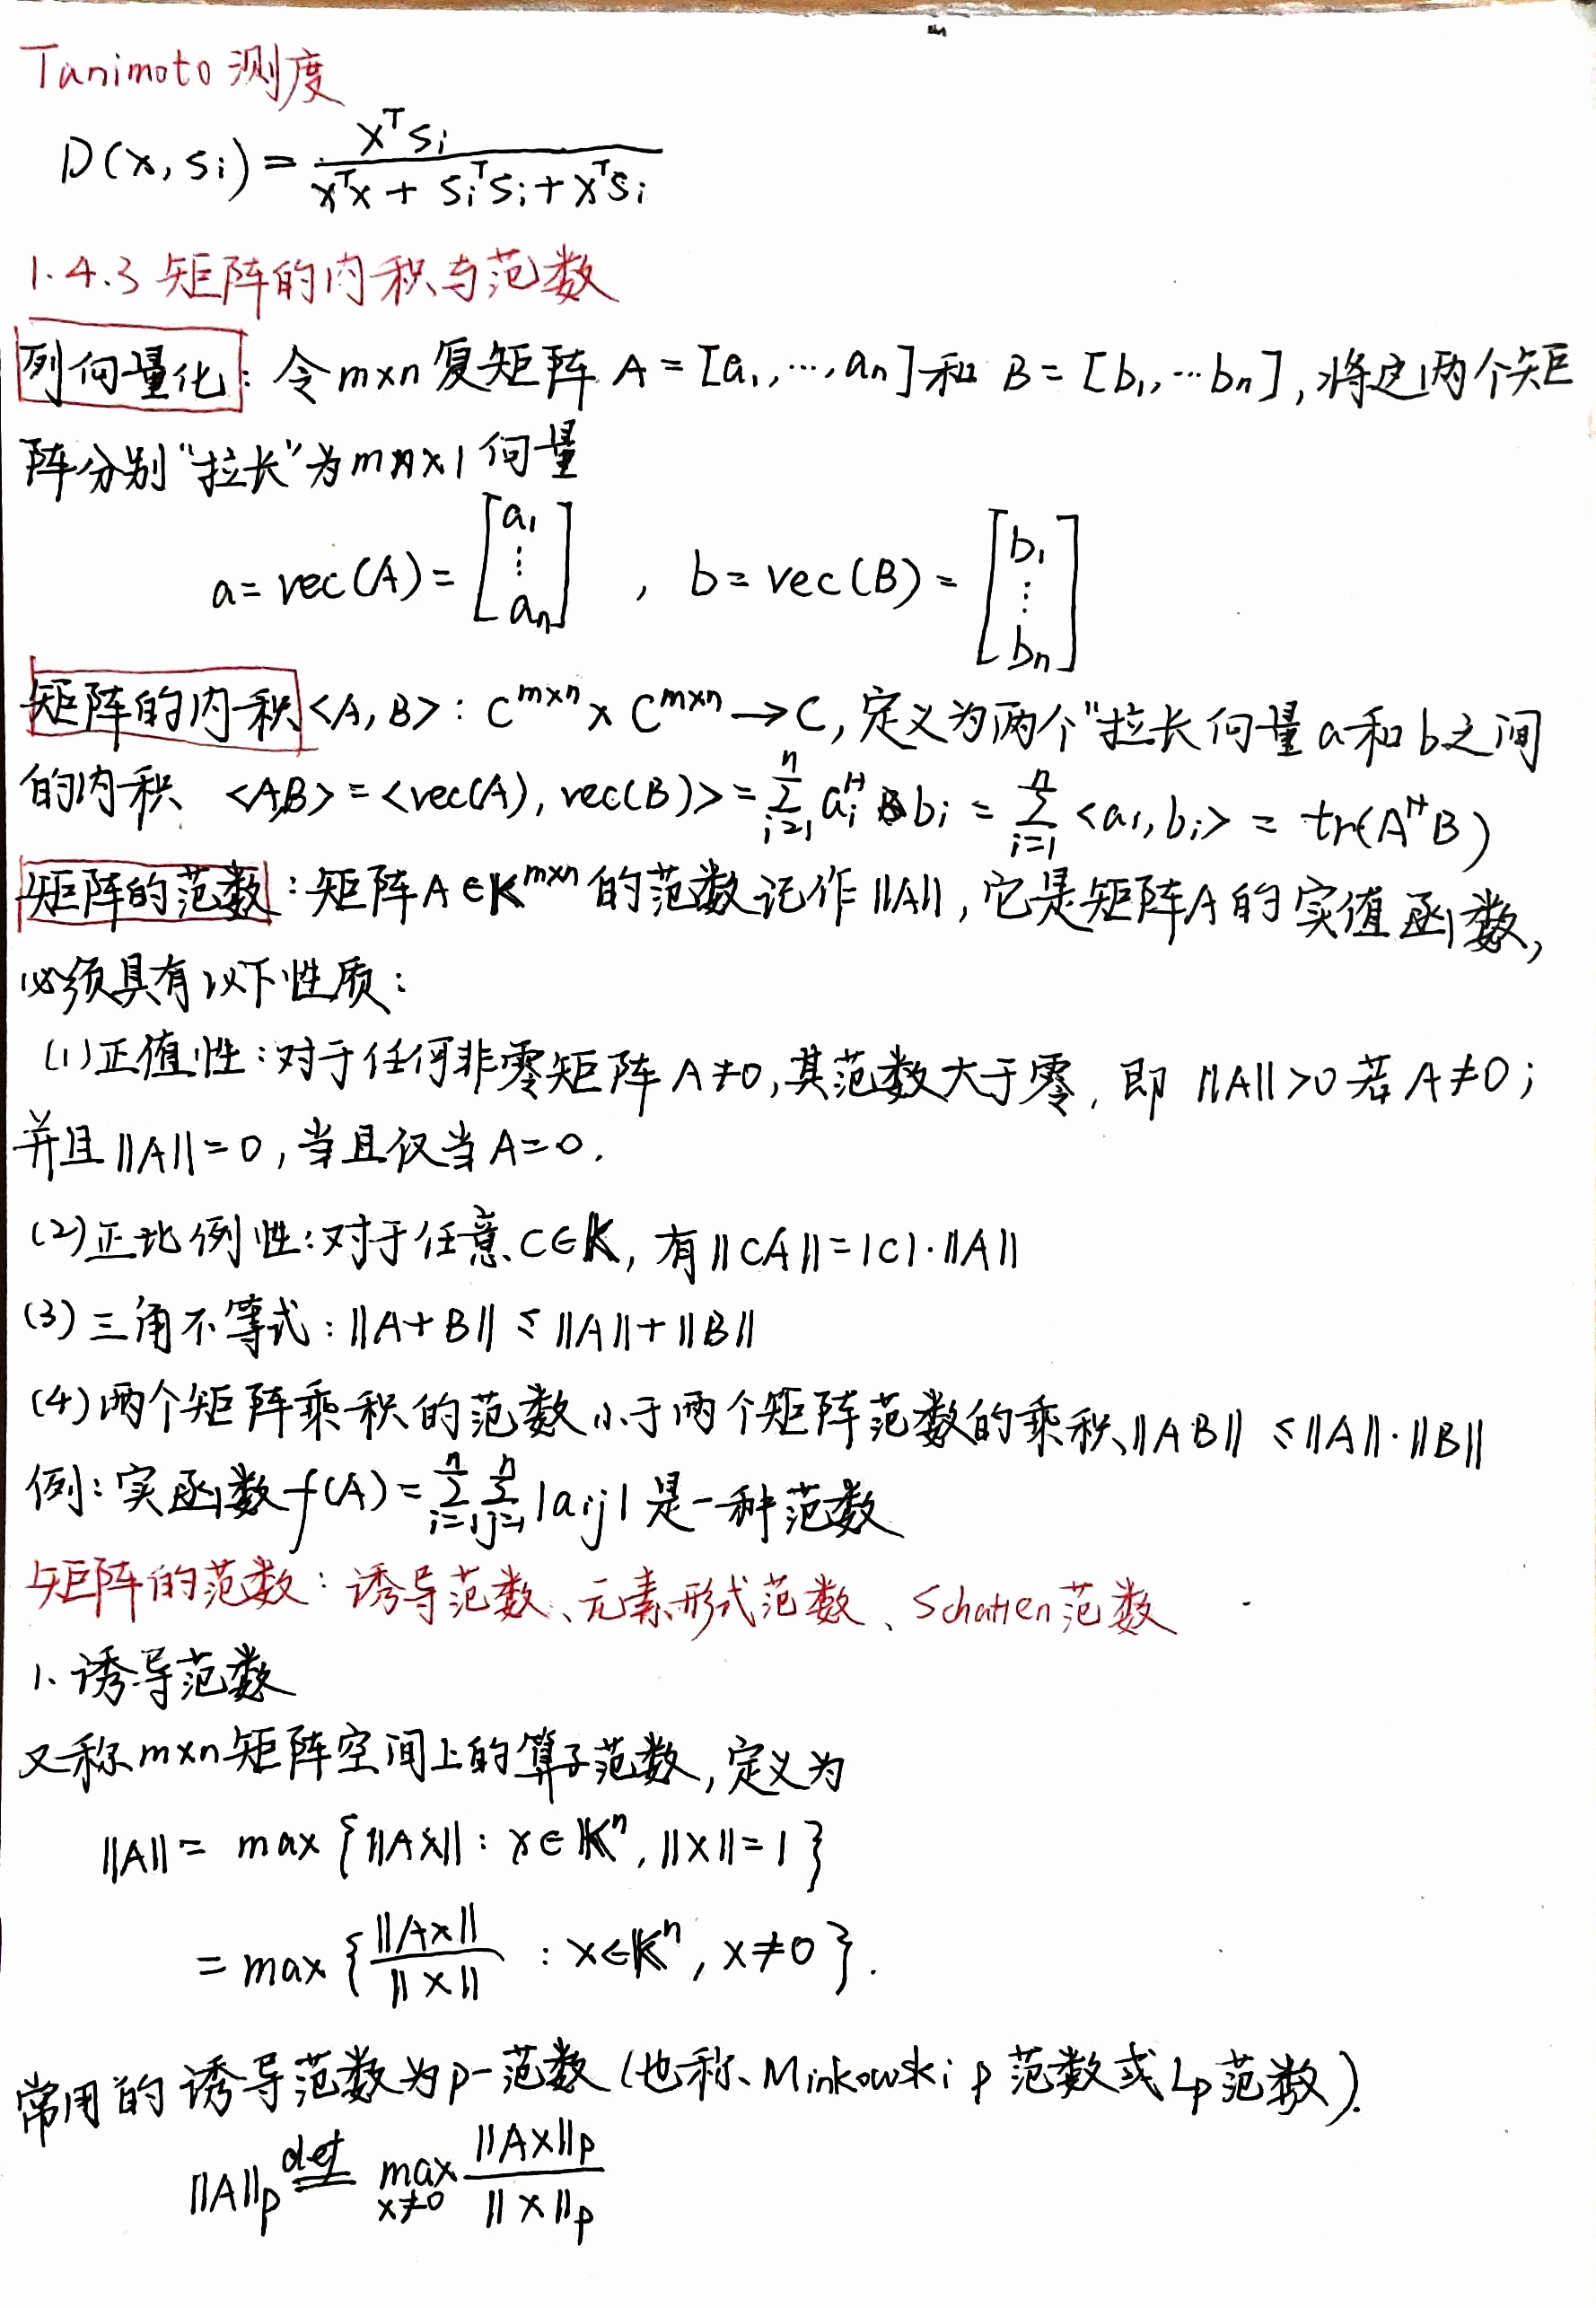 Tanimoto 测度
D(x, si) = xᵀsi / (xᵀx + siᵀsi + xᵀsi)
1.4.3 矩阵的内积与范数
列向量化: 令m×n复矩阵 A = [a₁,…,aₙ]和 B = [b₁,…bₙ],将这两个矩
阵分别"拉长"为mn×1向量
a = vec(A) = [a₁ ⋮ aₙ] , b = vec(B) = [b₁ ⋮ bₙ]
矩阵的内积<A, B>: Cᵐˣⁿ × Cᵐˣⁿ → C, 定义为两个"拉长向量a和b之间
的内积 <A,B> = <vec(A), vec(B)> = ∑ᵢ₌₁ⁿ aᵢᴴ bᵢ = ∑ᵢ₌₁ⁿ <a₁, bᵢ> = tr(AᴴB)
矩阵的范数: 矩阵A∈𝕂ᵐˣⁿ的范数记作‖A‖, 它是矩阵A的实值函数,
必须具有以下性质:
(1)正值性:对于任何非零矩阵A≠0,其范数大于零, 即 ‖A‖>0若A≠0;
并且‖A‖=0, 当且仅当A=0.
(2)正比例性:对于任意C∈𝕂, 有‖CA‖=|C|·‖A‖
(3)三角不等式: ‖A+B‖ ≤ ‖A‖+‖B‖
(4)两个矩阵乘积的范数小于两个矩阵范数的乘积‖AB‖ ≤‖A‖·‖B‖
例:实函数f(A) = ∑ᵢ₌₁ⁿ ∑ⱼ₌₁ⁿ |aij| 是一种范数
矩阵的范数: 诱导范数、元素形式范数、Schatten范数
1、诱导范数
又称m×n矩阵空间上的算子范数, 定义为
‖A‖ = max {‖Ax‖: x∈𝕂ⁿ, ‖x‖=1}
= max {‖Ax‖/‖x‖ : x∈𝕂ⁿ, x≠0}.
常用的诱导范数为p-范数(也称Minkowski p范数或Lp范数).
‖A‖p def= max x≠0 ‖Ax‖p / ‖x‖p